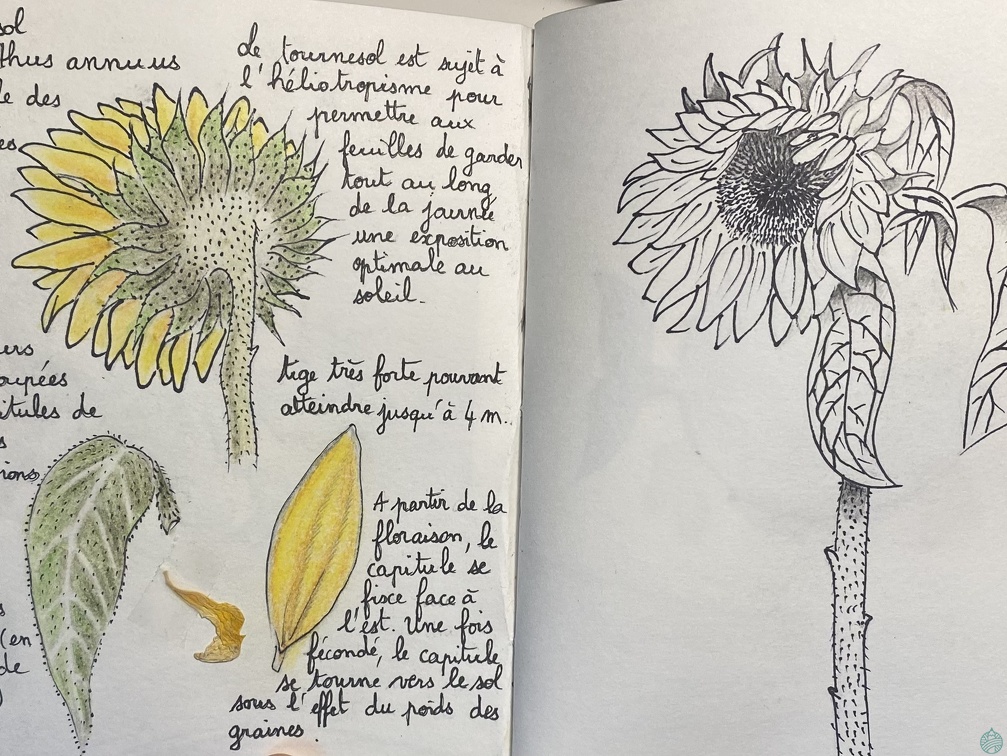 sol
thus annuus
le des
es
ers
oupées
itules de
s
ions
s
(en
de
le tournesol est sujet à
l'héliotropisme pour
permettre aux
feuilles de garder
tout au long
de la journée
une exposition
optimale au
soleil.
tige très forte pouvant
atteindre jusqu'à 4 m.
A partir de la
floraison, le
capitule se
fixe face à
l'est. Une fois
fécondé, le capitule
se tourne vers le sol
sous l'effet du poids des
graines.